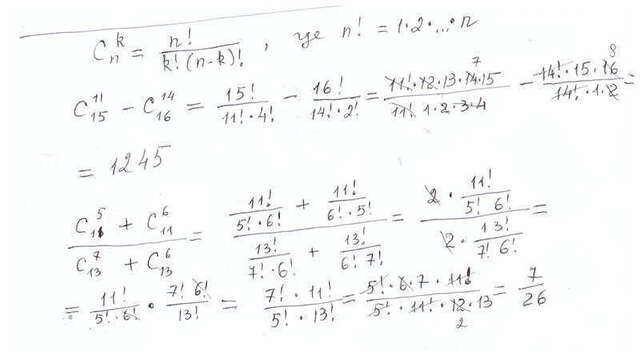 C_n^k = n! / k!(n-k)! , где n! = 1·2·...·n
C_15^11 − C_16^14 = 15! / 11!·4! − 16! / 14!·2! = 11!·12·13·14·15 / 11!·1·2·3·4 − 14!·15·16 / 14!·1·2 =
= 1245
C_11^5 + C_11^6 / C_13^7 + C_13^6 = (11! / 5!·6! + 11! / 6!·5!) / (13! / 7!·6! + 13! / 6!7!) = (2 · 11! / 5! 6!) / (2 · 13! / 7! 6!) =
= 11! / 5!·6! · 7! 6! / 13! = 7!·11! / 5!·13! = 5!·6·7·11! / 5!·11!·12·13 = 7 / 26